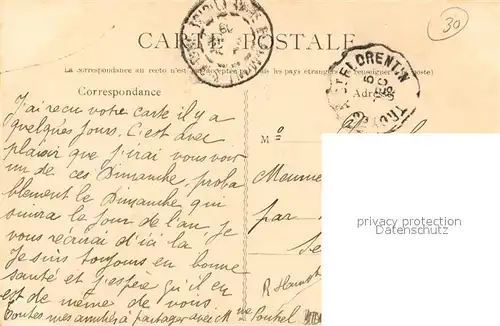 CARTE POSTALE
La correspondance au recto n'est pas acceptée par tous les pays étrangers (Se renseigner à la poste)
Correspondance
Adresse
30
ST FLORENTIN
J'ai reçu votre carte il y a
quelques jours. C'est avec
plaisir que j'irai vous voir
un de ces Dimanche, proba
blement le Dimanche qui
suivra le jour de l'an, je
vous récrirai d'ici là
Je suis toujours en bonne
santé et j'espère qu'il en
est de même de vous
Toutes mes amitiés à partager avec Mme
M
par
privacy protection
Datenschutz